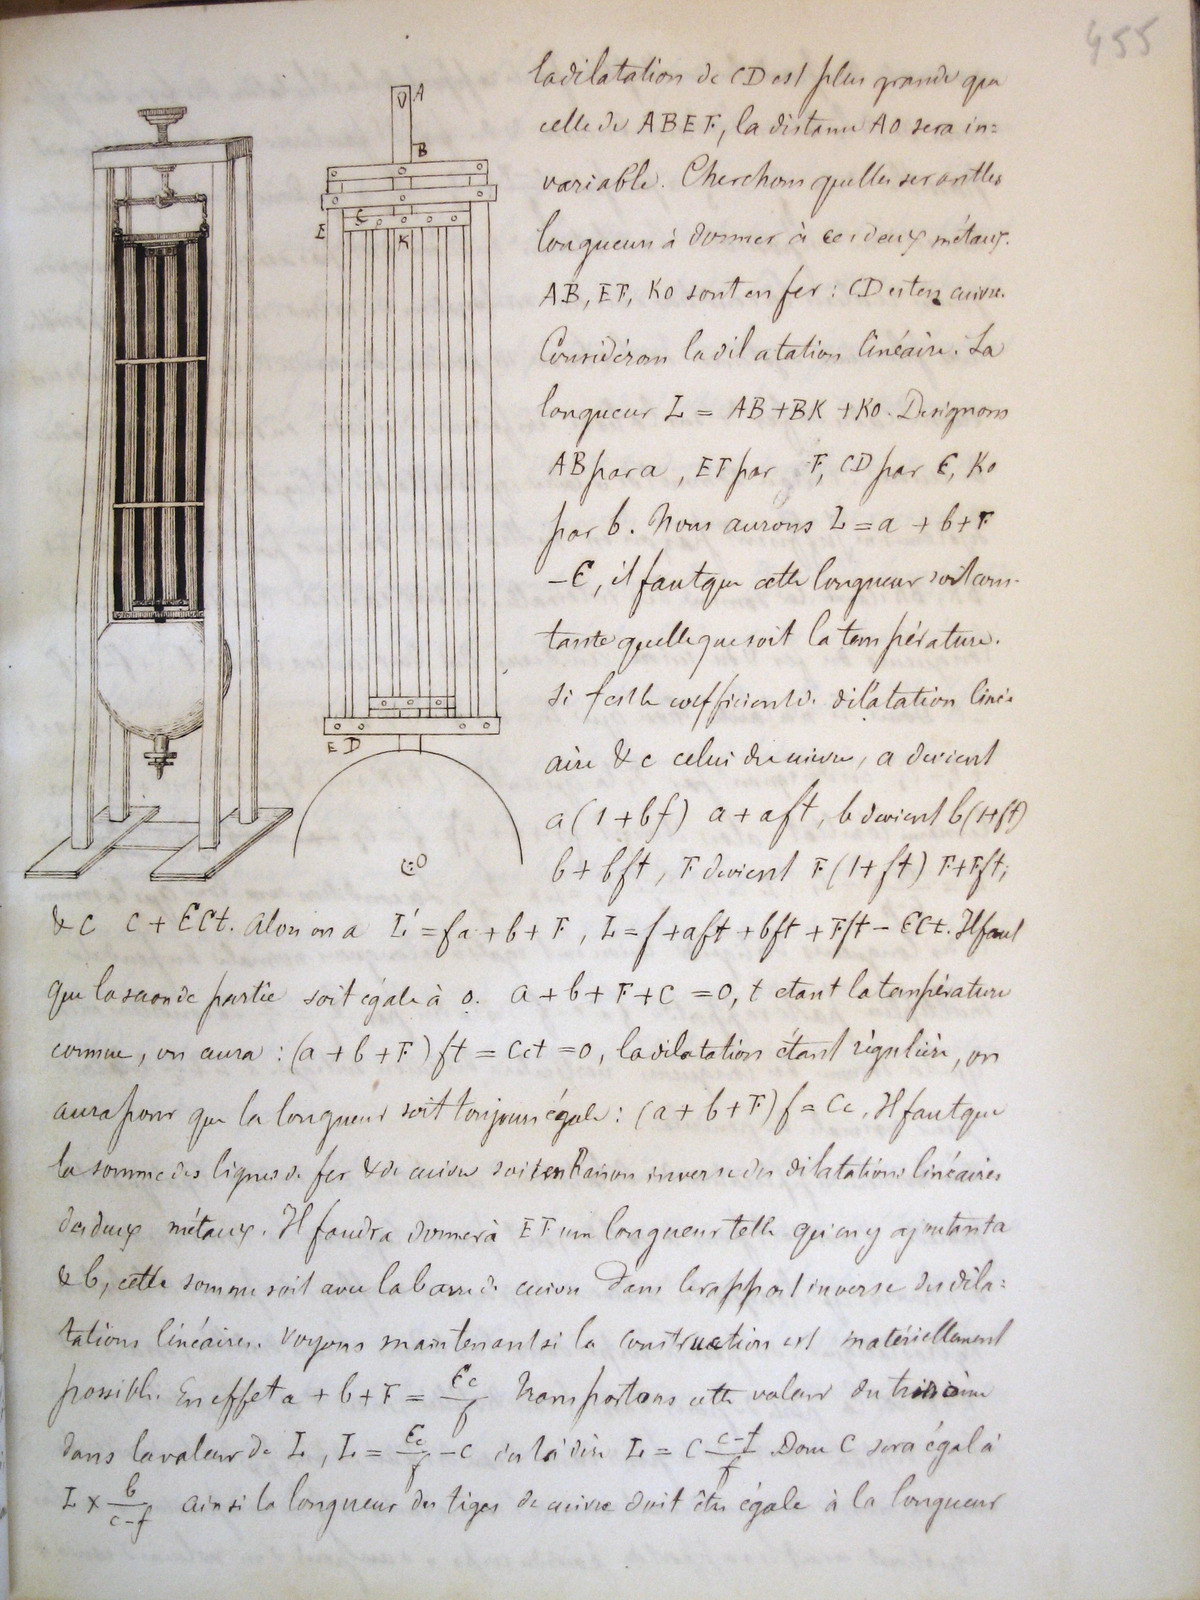 455
la dilatation de CD est plus grande que
celle de ABEF, la distance AO sera in=
variable. Cherchons quelles seront les
longueurs à donner à ces deux métaux.
AB, EF, KO sont en fer : CD est en cuivre.
Considérons la dilatation linéaire. La
longueur L = AB + BK + KO. Designons
AB par a, EF par F, CD par C, KO
par b. Nous aurons L = a + b + F
- C, il faut que cette longueur soit cons-
tante quelle que soit la température.
Si f est le coefficient de dilatation liné-
aire & c celui du cuivre, a devient
a(1+bf) a + aft, b devient b(1+ft)
b + bft, F devient F(1+ft) F+Fft,
& C C + CCt. Alors on a L' = fa + b + F, L = f + aft + bft + Fft - CCt. Il faut
que la seconde partie soit égale à 0. a + b + F + C = 0, t etant la température
connue, on aura : (a + b + F) ft = Cct = 0, la dilatation étant régulière, on
aura pour que la longueur soit toujours égale : (a + b + F) f = Cc. Il faut que
la somme des lignes de fer & de cuivre soit en Raison inverse des dilatations linéaires
des deux métaux. Il faudra donner à EF une longueur telle qu'en y ajoutant a
& b, cette somme soit avec la barre de cuivre dans le rapport inverse des dila=
tations linéaires. Voyons maintenant si la construction est matériellement
possible. En effet a + b + F = Cc/f Transportons cette valeur du troisième
dans la valeur de L, L = Cc/f - C c'est à dire L = C c-f/f Donc C sera égal à
L × b/c-f ainsi la longueur des tiges de cuivre doit être égale à la longueur
A
B
E
C
K
E D
O